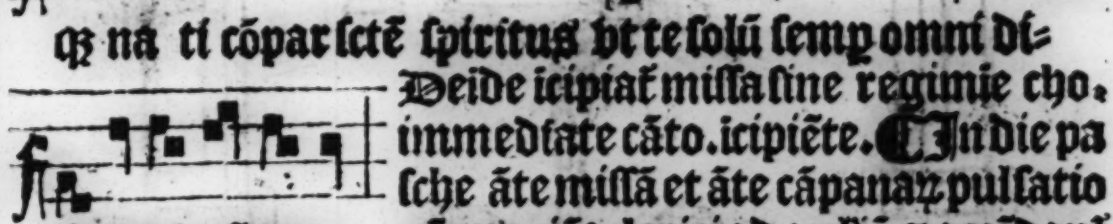 qꝫ na ti cōpar ſctē ſpiritus vt te ſolū ſemꝑ omni di⸗
Deīde īcipiat᷑ miſſa ſine regimīe cho.
immediate cāto.īcipiēte.¶In die pa
ſche āte miſſā et āte cāpanaꝝ pulſatio